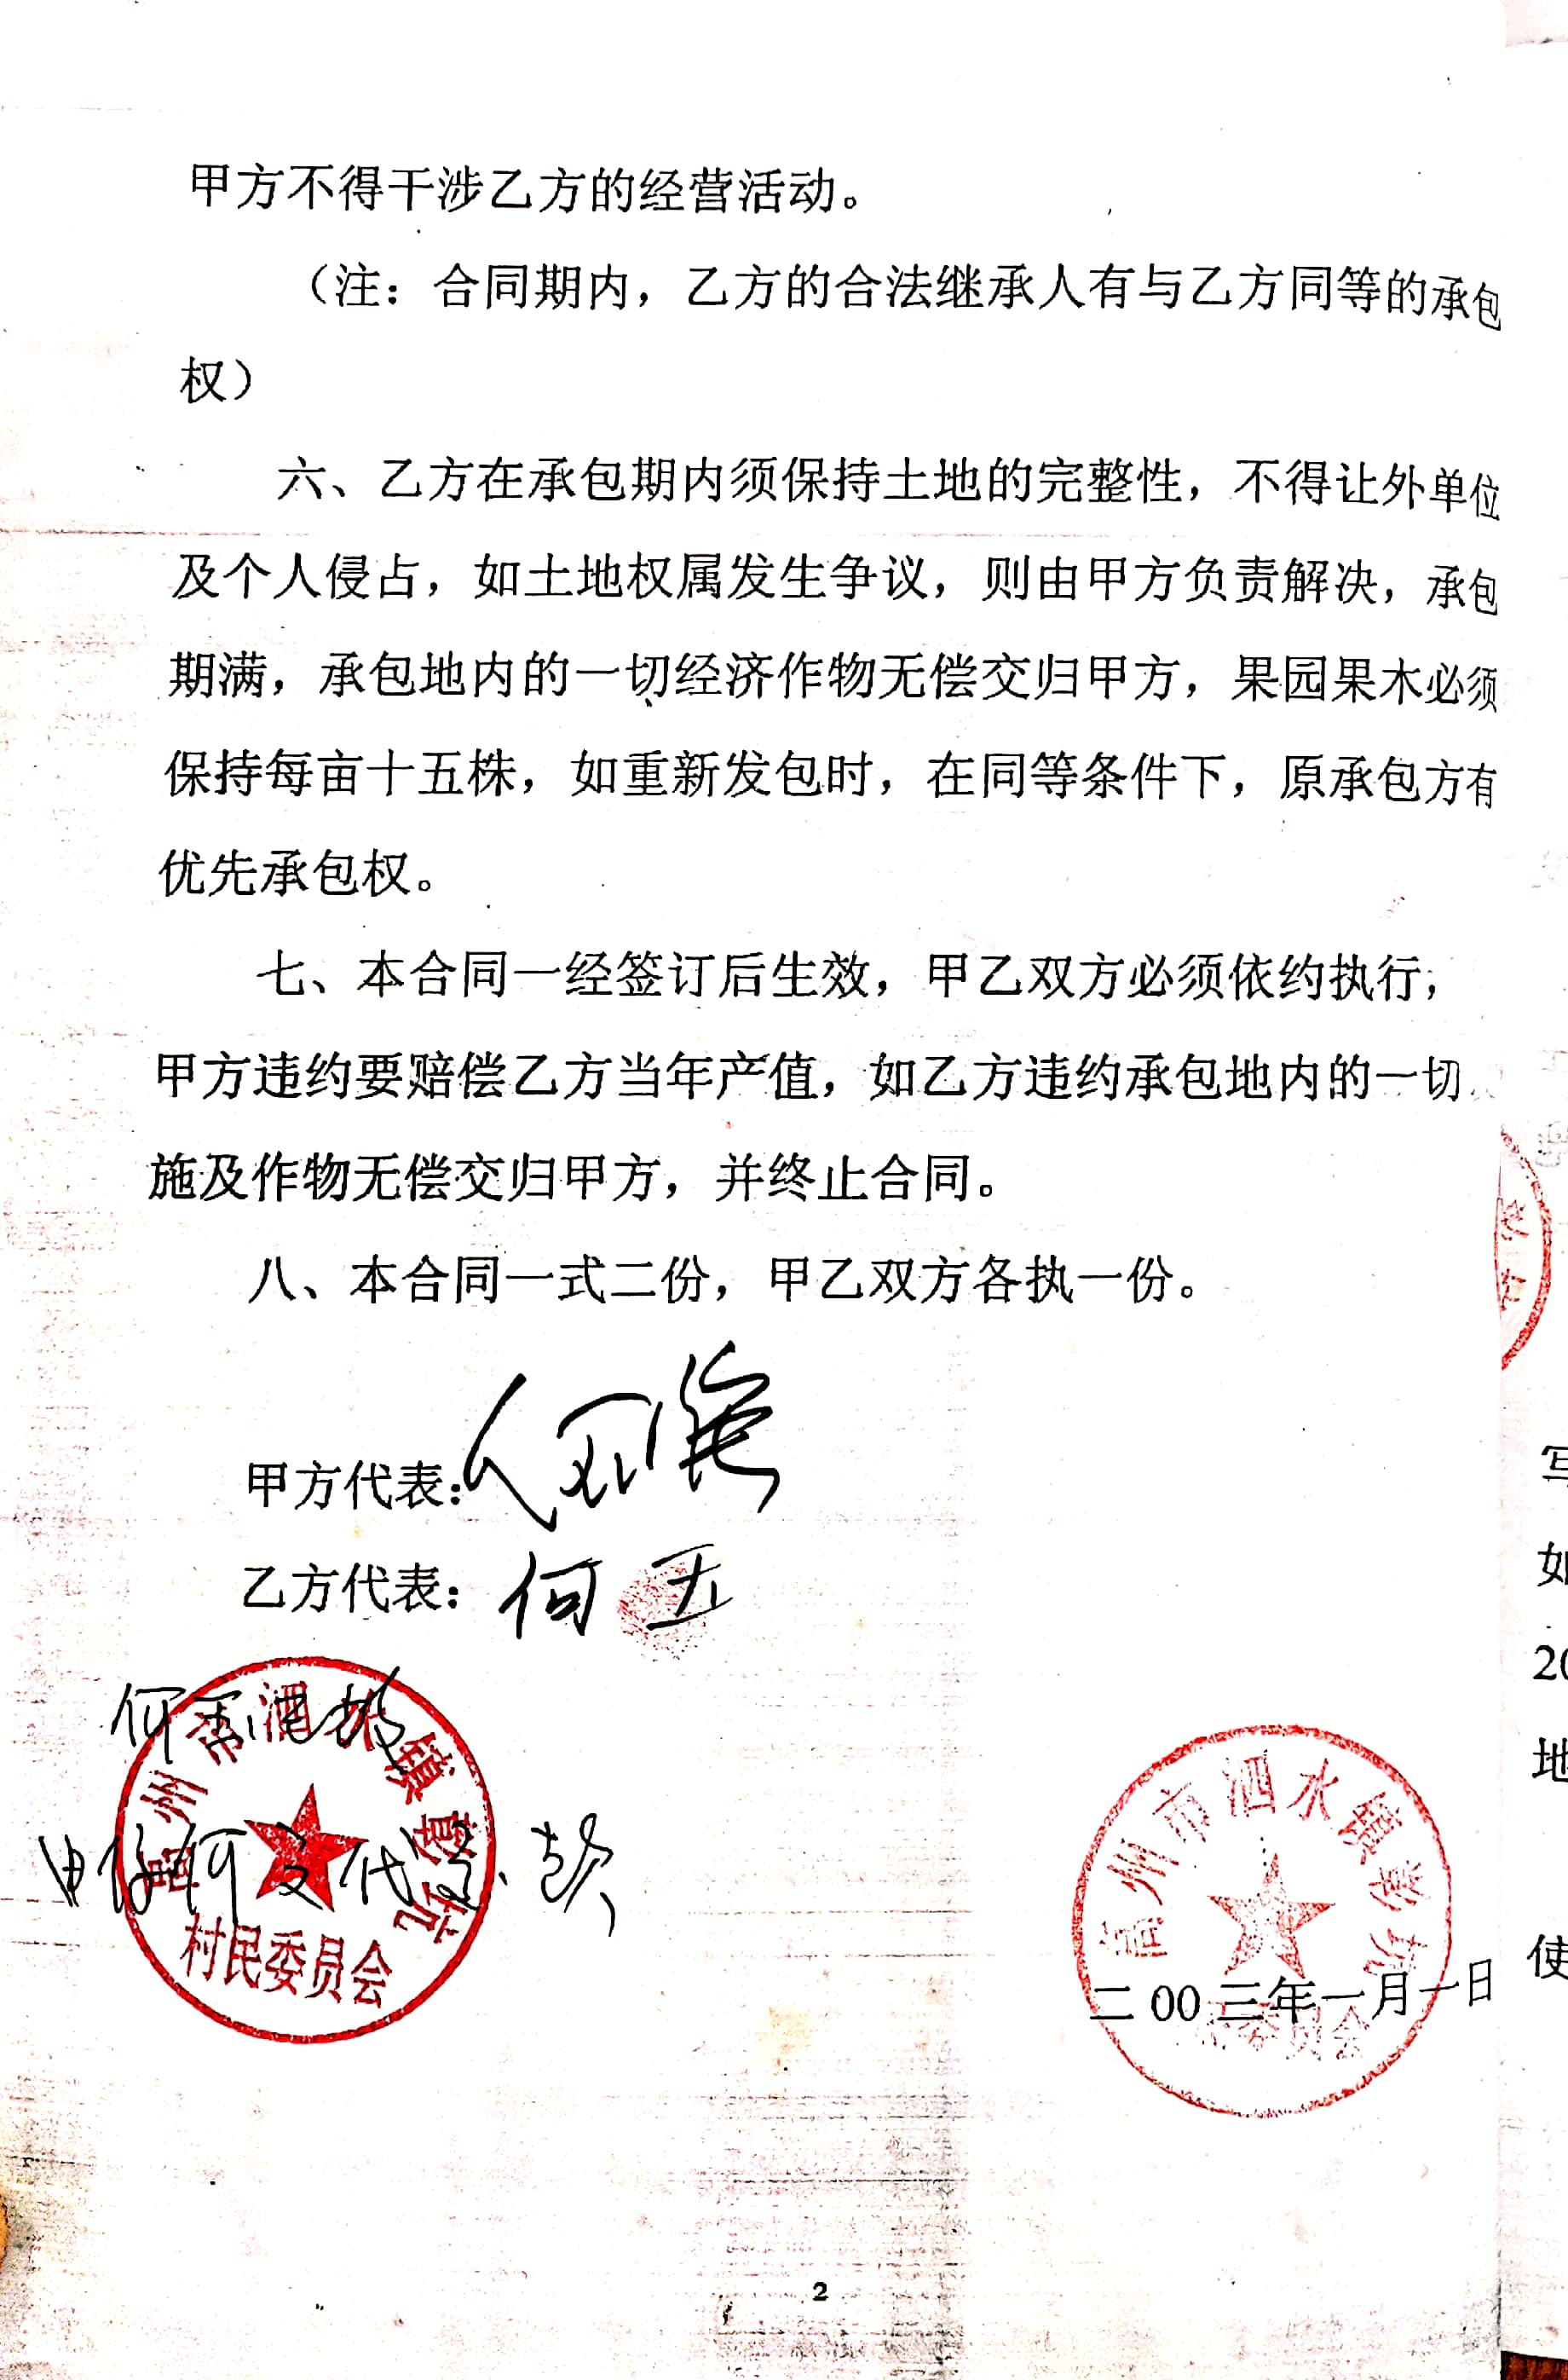 甲方不得干涉乙方的经营活动。
（注：合同期内，乙方的合法继承人有与乙方同等的承包
权）
六、乙方在承包期内须保持土地的完整性，不得让外单位
及个人侵占，如土地权属发生争议，则由甲方负责解决，承包
期满，承包地内的一切经济作物无偿交归甲方，果园果木必须
保持每亩十五株，如重新发包时，在同等条件下，原承包方有
优先承包权。
七、本合同一经签订后生效，甲乙双方必须依约执行，
甲方违约要赔偿乙方当年产值，如乙方违约承包地内的一切
施及作物无偿交归甲方，并终止合同。
八、本合同一式二份，甲乙双方各执一份。
甲方代表：
乙方代表：何
高州市泗水镇彭坑
村民委员会
高州市泗水镇彭坑
村委员会
二00三年一月一日
2
写
如
20
地
使